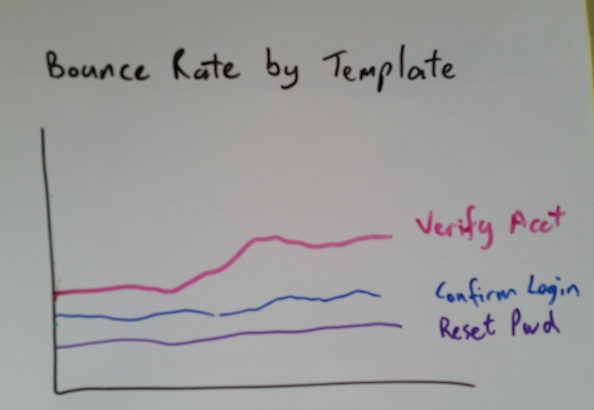 Bounce Rate by Template
Verify Acct
Confirm Login
Reset Pwd